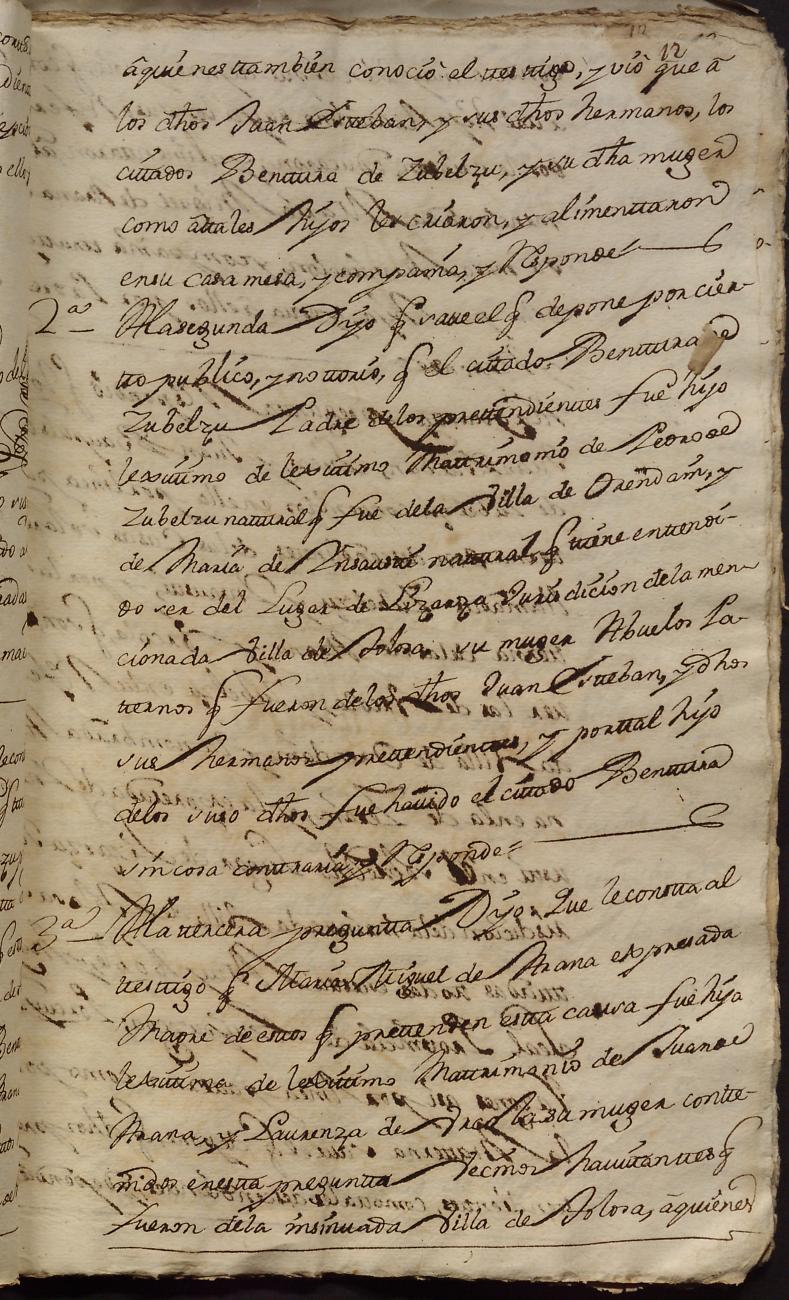 12
âquienes ttambien conociô el ttesttigo, y viô que â
los dhos Juan Esteban, y sus dhos hermanos, los
cittados Benttura de Zubelzu, y su dha muger
como âttales hijos les criaron, y alimenttaron
en su casa mesa, y compañia, y Responde
2ª Ala segunda Dijo q save el q depone por cier-
tto publico, y nottorio, q el cittado Benttura de
Zubelzu Padre de los prettendienttes fue hijo
lexittimo de lexittimo Mattrimonio de Pedro de
Zubelzu natural q fue dela Villa de Orendain, y
de Maria de Insausti natural, q ttiene enttendi-
do ser del Lugar de Lizarza Jurisdicion dela men-
cionada Villa de Tolosa su muger Abuelos Pa-
tternos q fueron delos dhos Juan Esteban, y dhos
sus hermanos prettendienttes, y por ttal hijo
delos suso dhos fue havido el cittado Benttura
sin cosa conttraria, y Responde
3ª Ala ttercera pregunta Dijo Que le constta al
ttesttigo q Maria Miguel de Arana expresada
Madre de esttos q prettenden estta causa fue hija
lexittima de lexittimo Mattrimonio de Juan de
Arana, y Laurenza de su muger contte-
nidos en estta pregunta Vecinos havittanttes q
fueron dela insinuada Villa de Tolosa, âquienes